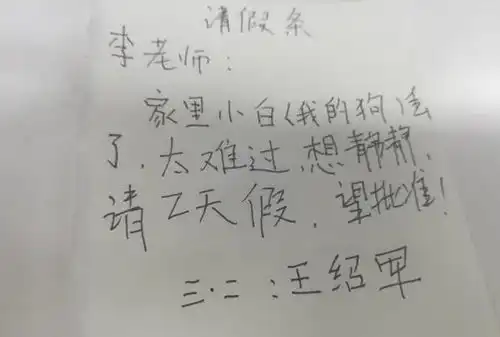 请假条
李老师：
家里小白(我的狗)去
了，太难过，想静静，
请2天假，望批准！
三·二：王绍军